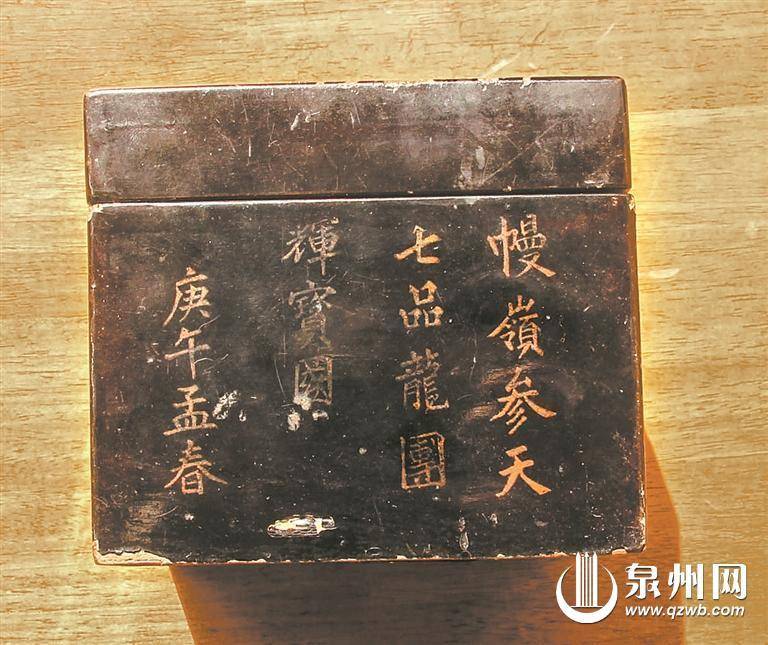 幔嶺参天
七品龍團
輝寶圖
庚午孟春
泉州网
www.qzwb.com